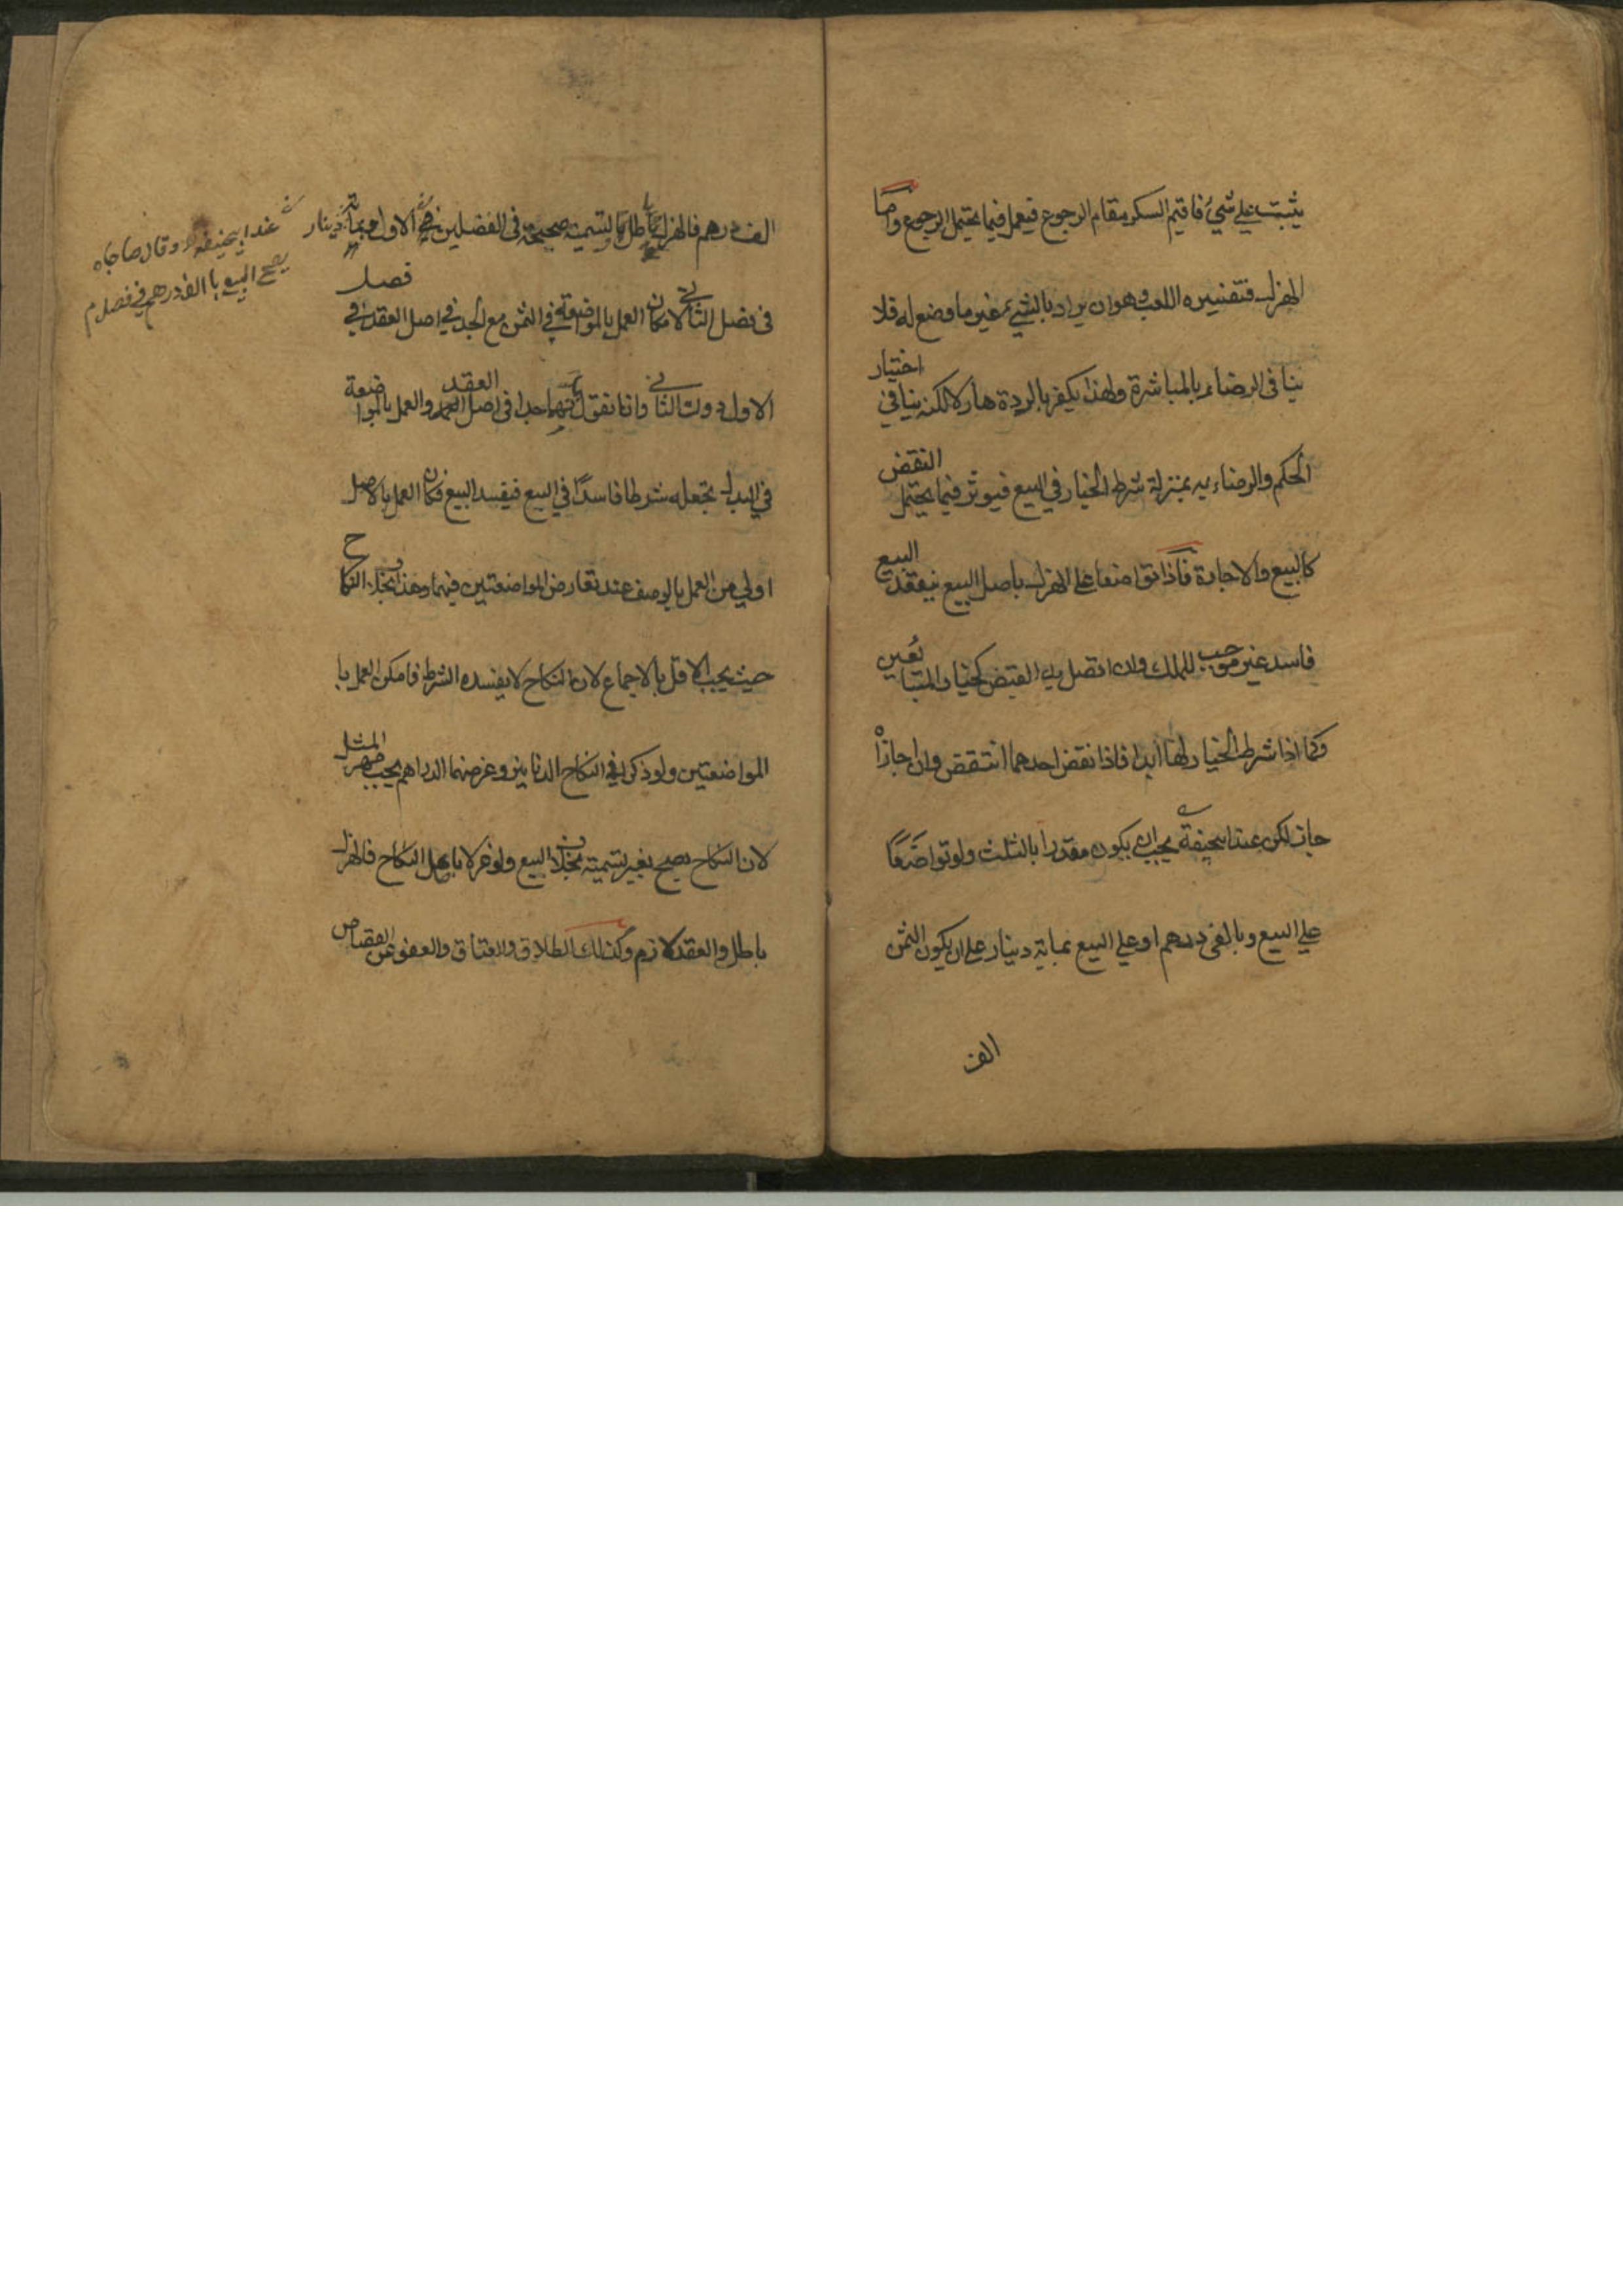 يثبت على شيء فاقيم السكر مقام الرجوع فيعمل فيما يحتمل الرجوع واما
الهزل فتفسيره اللعب وهو ان يراد بالشيء غير ما وضع له فلا
ينافى الرضاء بالمباشرة ولهذا يكفر بالردة هازلا لكنه ينافي اختيار
الحكم والرضاء به بمنزلة شرط الخيار في البيع فيوثر فيما يحتمل النقض
كالبيع والاجارة فاذا تواضعا على الهزل باصل البيع ينعقد البيع
فاسد غير موجب للملك وان اتصل به القبض كخيار المتبايعين
وكما اذا شرط الخيار لهما ابدا فاذا نقض احدهما انتقض وان اجازا
جاز لكن عند ابيحنيفة يجب ان يكون مقدرا بالثلث ولو تواضعا
على البيع وبالفى درهم او على البيع بماية دينار على ان يكون الثمن
الف
الف درهم فالهزل باطل والتسمية صحيحة فى الفصلين الاول دينار
عند ابيحنيفة وقال صاحباه
يصح البيع با الف درهم في فصل
فى فصل الثاني لامكان العمل بالمواضعة في الثمن مع الجد في اصل العقد في فصل
الاول دون الثانى وانا نقول بانهما جدا فى اصل العقد والعمل بالمواضعة
في البدل تجعله شرطا فاسدًا في البيع فيفسد البيع فكان العمل بالاصل
اولى من العمل بالوصف عند تعارض المواضعتين فيهما وهذا بخلاف النكاح
حيث يجب الاقل بالاجماع لان النكاح لا يفسده الشرط فامكن العمل با
المواضعتين ولو ذكرا في النكاح الدنانير وغرضهما الدراهم يجب مهر المثل
لان النكاح يصح بغير تسمية بخلاف البيع ولو هزلا باصل النكاح فالهزل
باطل والعقد لازم وكذلك الطلاق والعتاق والعفو عن القصاص